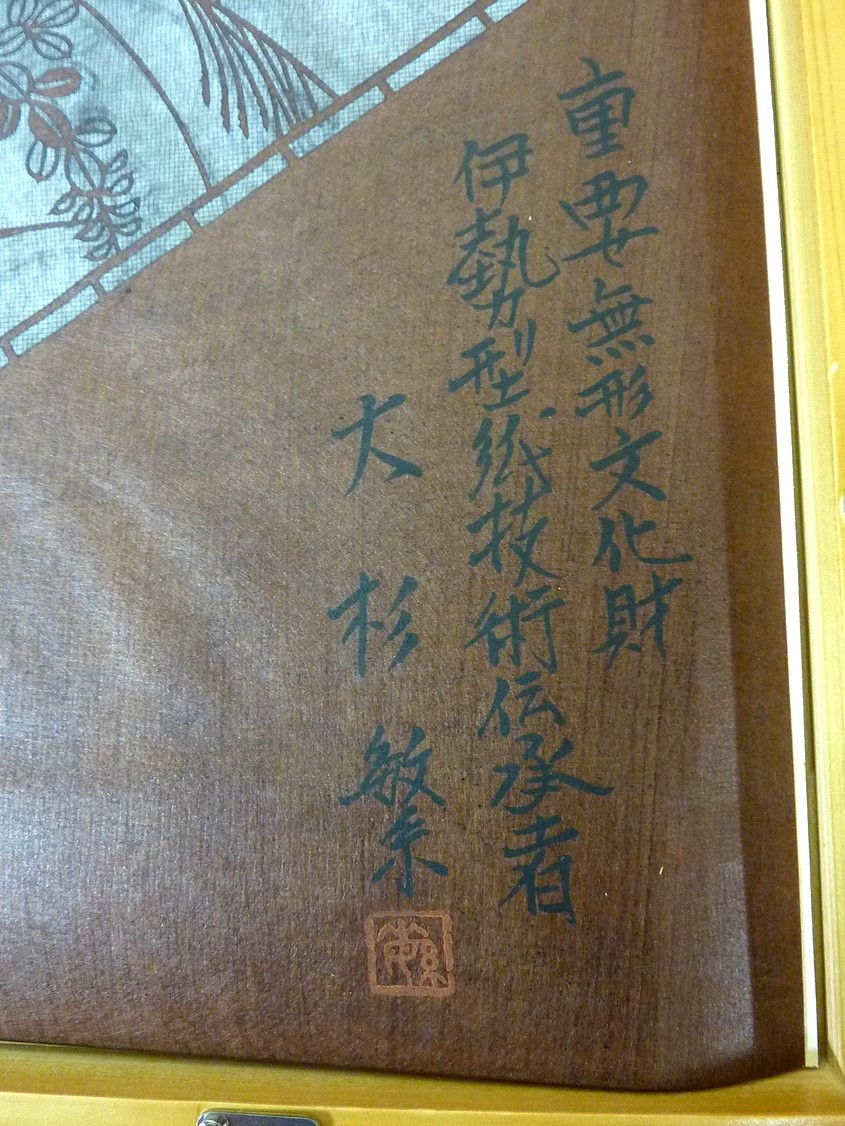 重要無形文化財
伊勢型紙技術伝承者
大杉繁